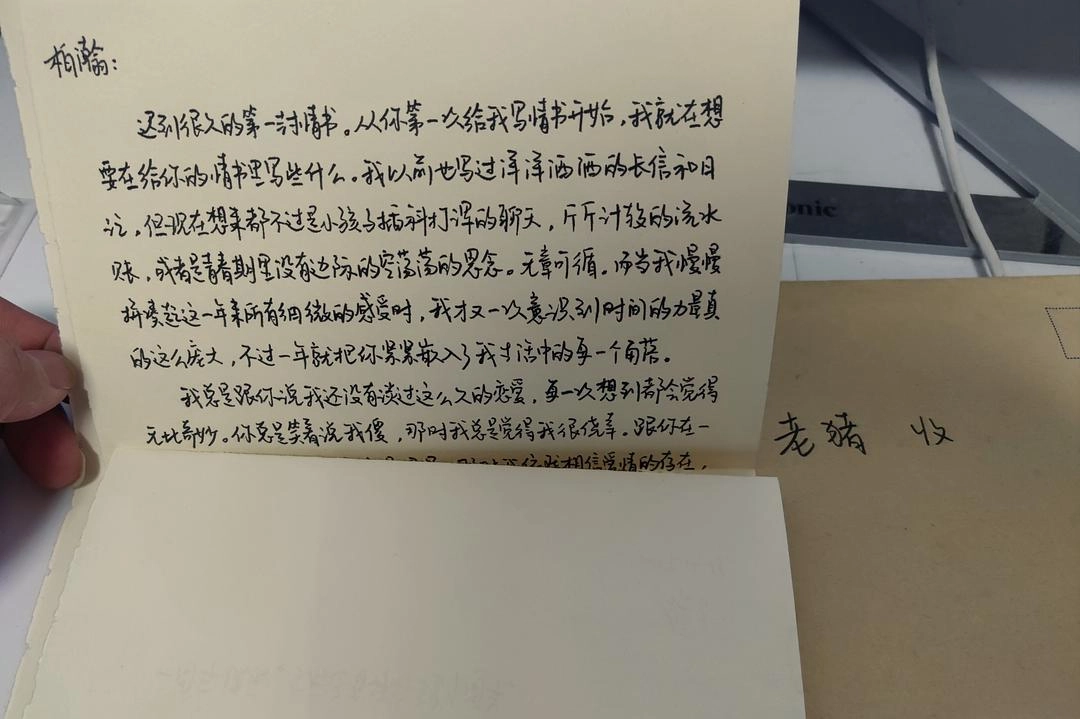 柏瀚：
迟到很久的第一封情书。从你第一次给我写情书开始，我就在想
要在给你的情书里写些什么。我以前也写过洋洋洒洒的长信和日
记，但现在想来都不过是小孩子插科打诨的聊天，斤斤计较的流水
账，或者是青春期里没有边际的空荡荡的思念。无章可循。而当我慢慢
拼凑起这一年来所有细微的感受时，我才又一次意识到时间的力量真
的这么庞大，不过一年就把你紧紧嵌入了我生活中的每一个角落。
我总是跟你说我还没有谈过这么久的恋爱，每一次想到都会觉得
无比奇妙。你总是笑着说我傻，那时我总是觉得我很侥幸。跟你在一
我相信爱情的存在，
老猪 收
onic